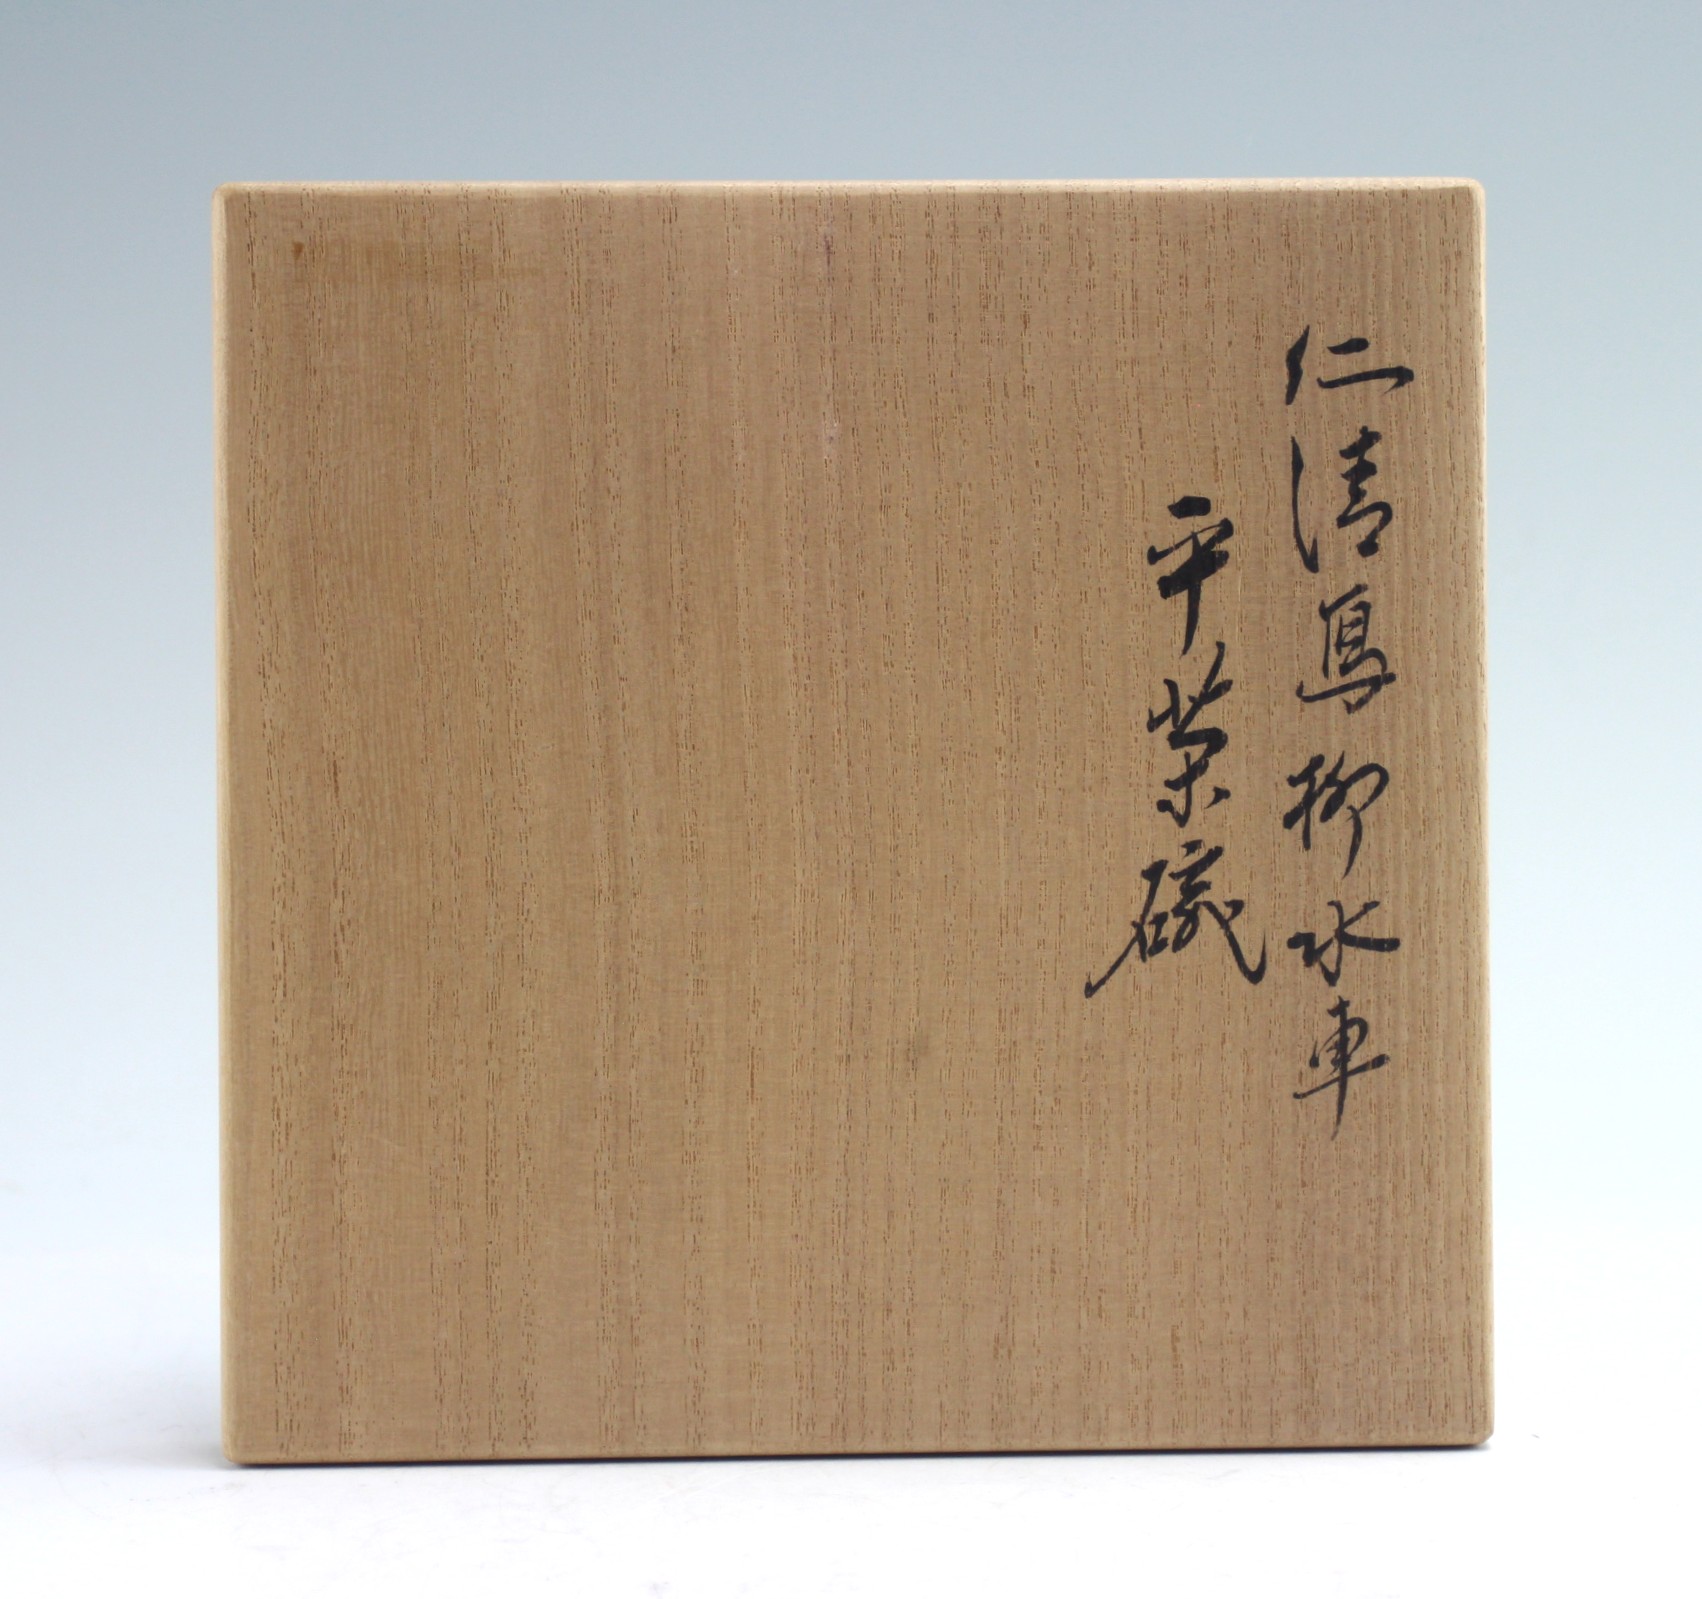 仁清写柳水車
平茶碗